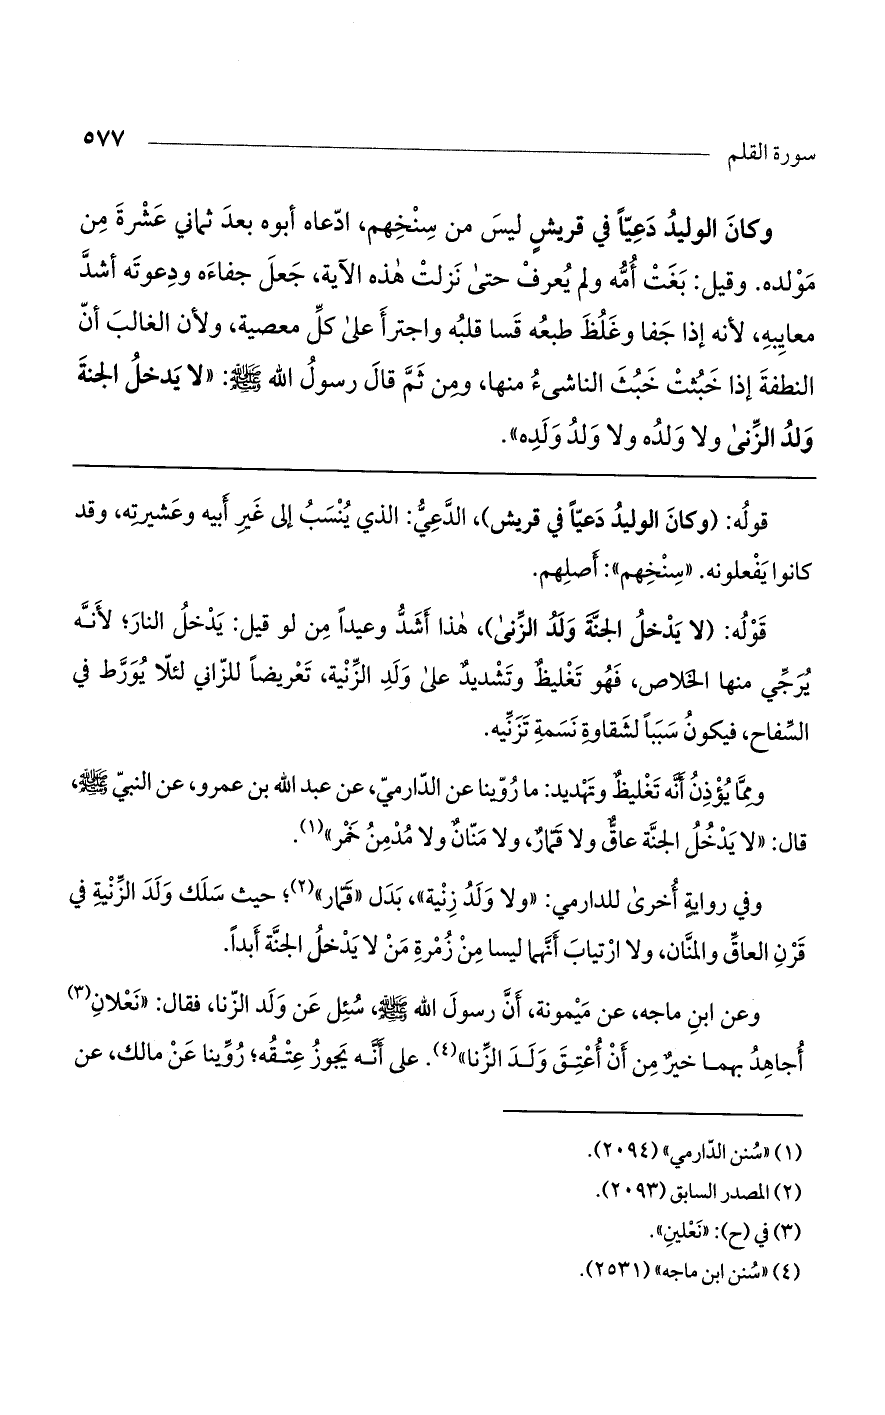 سورة القلم ٥٧٧
وكانَ الوليدُ دَعِيّاً في قريشٍ ليسَ من سِنْخِهم، ادّعاه أبوه بعدَ ثماني عَشْرةَ مِن
مَوْلده. وقيل: بَغَتْ أُمُّه ولم يُعرفْ حتىٰ نَزلتْ هٰذه الآية، جَعلَ جفاءَه ودِعوتَه أشدَّ
معايِبِهِ، لأنه إذا جَفا وغَلُظَ طبعُه قَسا قلبُه واجترأَ علىٰ كلِّ معصية، ولأن الغالبَ أنّ
النطفةَ إذا خَبُثتْ خَبُثَ الناشىءُ منها، ومِن ثَمَّ قالَ رسولُ الله ﷺ: «لا يَدخلُ الجنةَ
وَلدُ الزِّنىٰ ولا وَلدُه ولا وَلدُ وَلَدِه».
قولُه: (وكانَ الوليدُ دَعيّاً في قريش)، الدَّعِيُّ: الذي يُنْسَبُ إلى غَيرِ أَبيه وعَشيرتِه، وقد
كانوا يَفْعلونه. «سِنْخِهم»: أَصلِهم.
قَوْلُه: (لا يَدْخلُ الجنَّةَ وَلَدُ الزِّنىٰ)، هٰذا أَشَدُّ وعيداً مِن لو قيل: يَدْخلُ النارَ؛ لأَنَّه
يُرَجِّي منها الخَلاص، فَهُو تَغْليظٌ وتَشْديدٌ علىٰ وَلَدِ الزِّنْية، تَعْريضاً للزّاني لئلّا يُوَرَّط في
السِّفاح، فيكونُ سَبَباً لشَقاوةِ نَسَمةِ تَزَنِّيه.
وممَّا يُؤْذِنُ أنَّه تَغْليظٌ وتَهْديد: ما رُوّينا عن الدّارميّ، عن عبد الله بن عمرو، عن النبيّ ﷺ،
قال: «لا يَدْخُلُ الجنَّة عاقٌّ ولا قَمّارٌ، ولا مَنّانٌ ولا مُدْمِنُ خَمْر»(١).
وفي روايةٍ أُخرىٰ للدارمي: «ولا وَلَدُ زِنْية»، بَدَل «قَمّار»(٢)؛ حيث سَلَك وَلَدَ الزِّنْيةِ في
قَرْنِ العاقِّ والمنَّان، ولا ارْتيابَ أَنَّهما ليسا مِنْ زُمْرةِ مَنْ لا يَدْخلُ الجنَّة أَبداً.
وعن ابنِ ماجه، عن مَيْمونة، أَنَّ رسولَ الله ﷺ، سُئِل عَن وَلَد الزّنا، فقال: «نَعْلانِ(٣)
أُجاهِدُ بهما خيرٌ مِن أَنْ أُعْتِقَ وَلَدَ الزِّنا»(٤). على أَنَّه يَجوزُ عِتْقُه؛ رُوِّينا عَنْ مالك، عن
(١) «سُنن الدّارمي» (٢٠٩٤).
(٢) المصدر السابق (٢٠٩٣).
(٣) في (ح): «نَعْلينِ».
(٤) «سُنن ابن ماجه» (٢٥٣١).